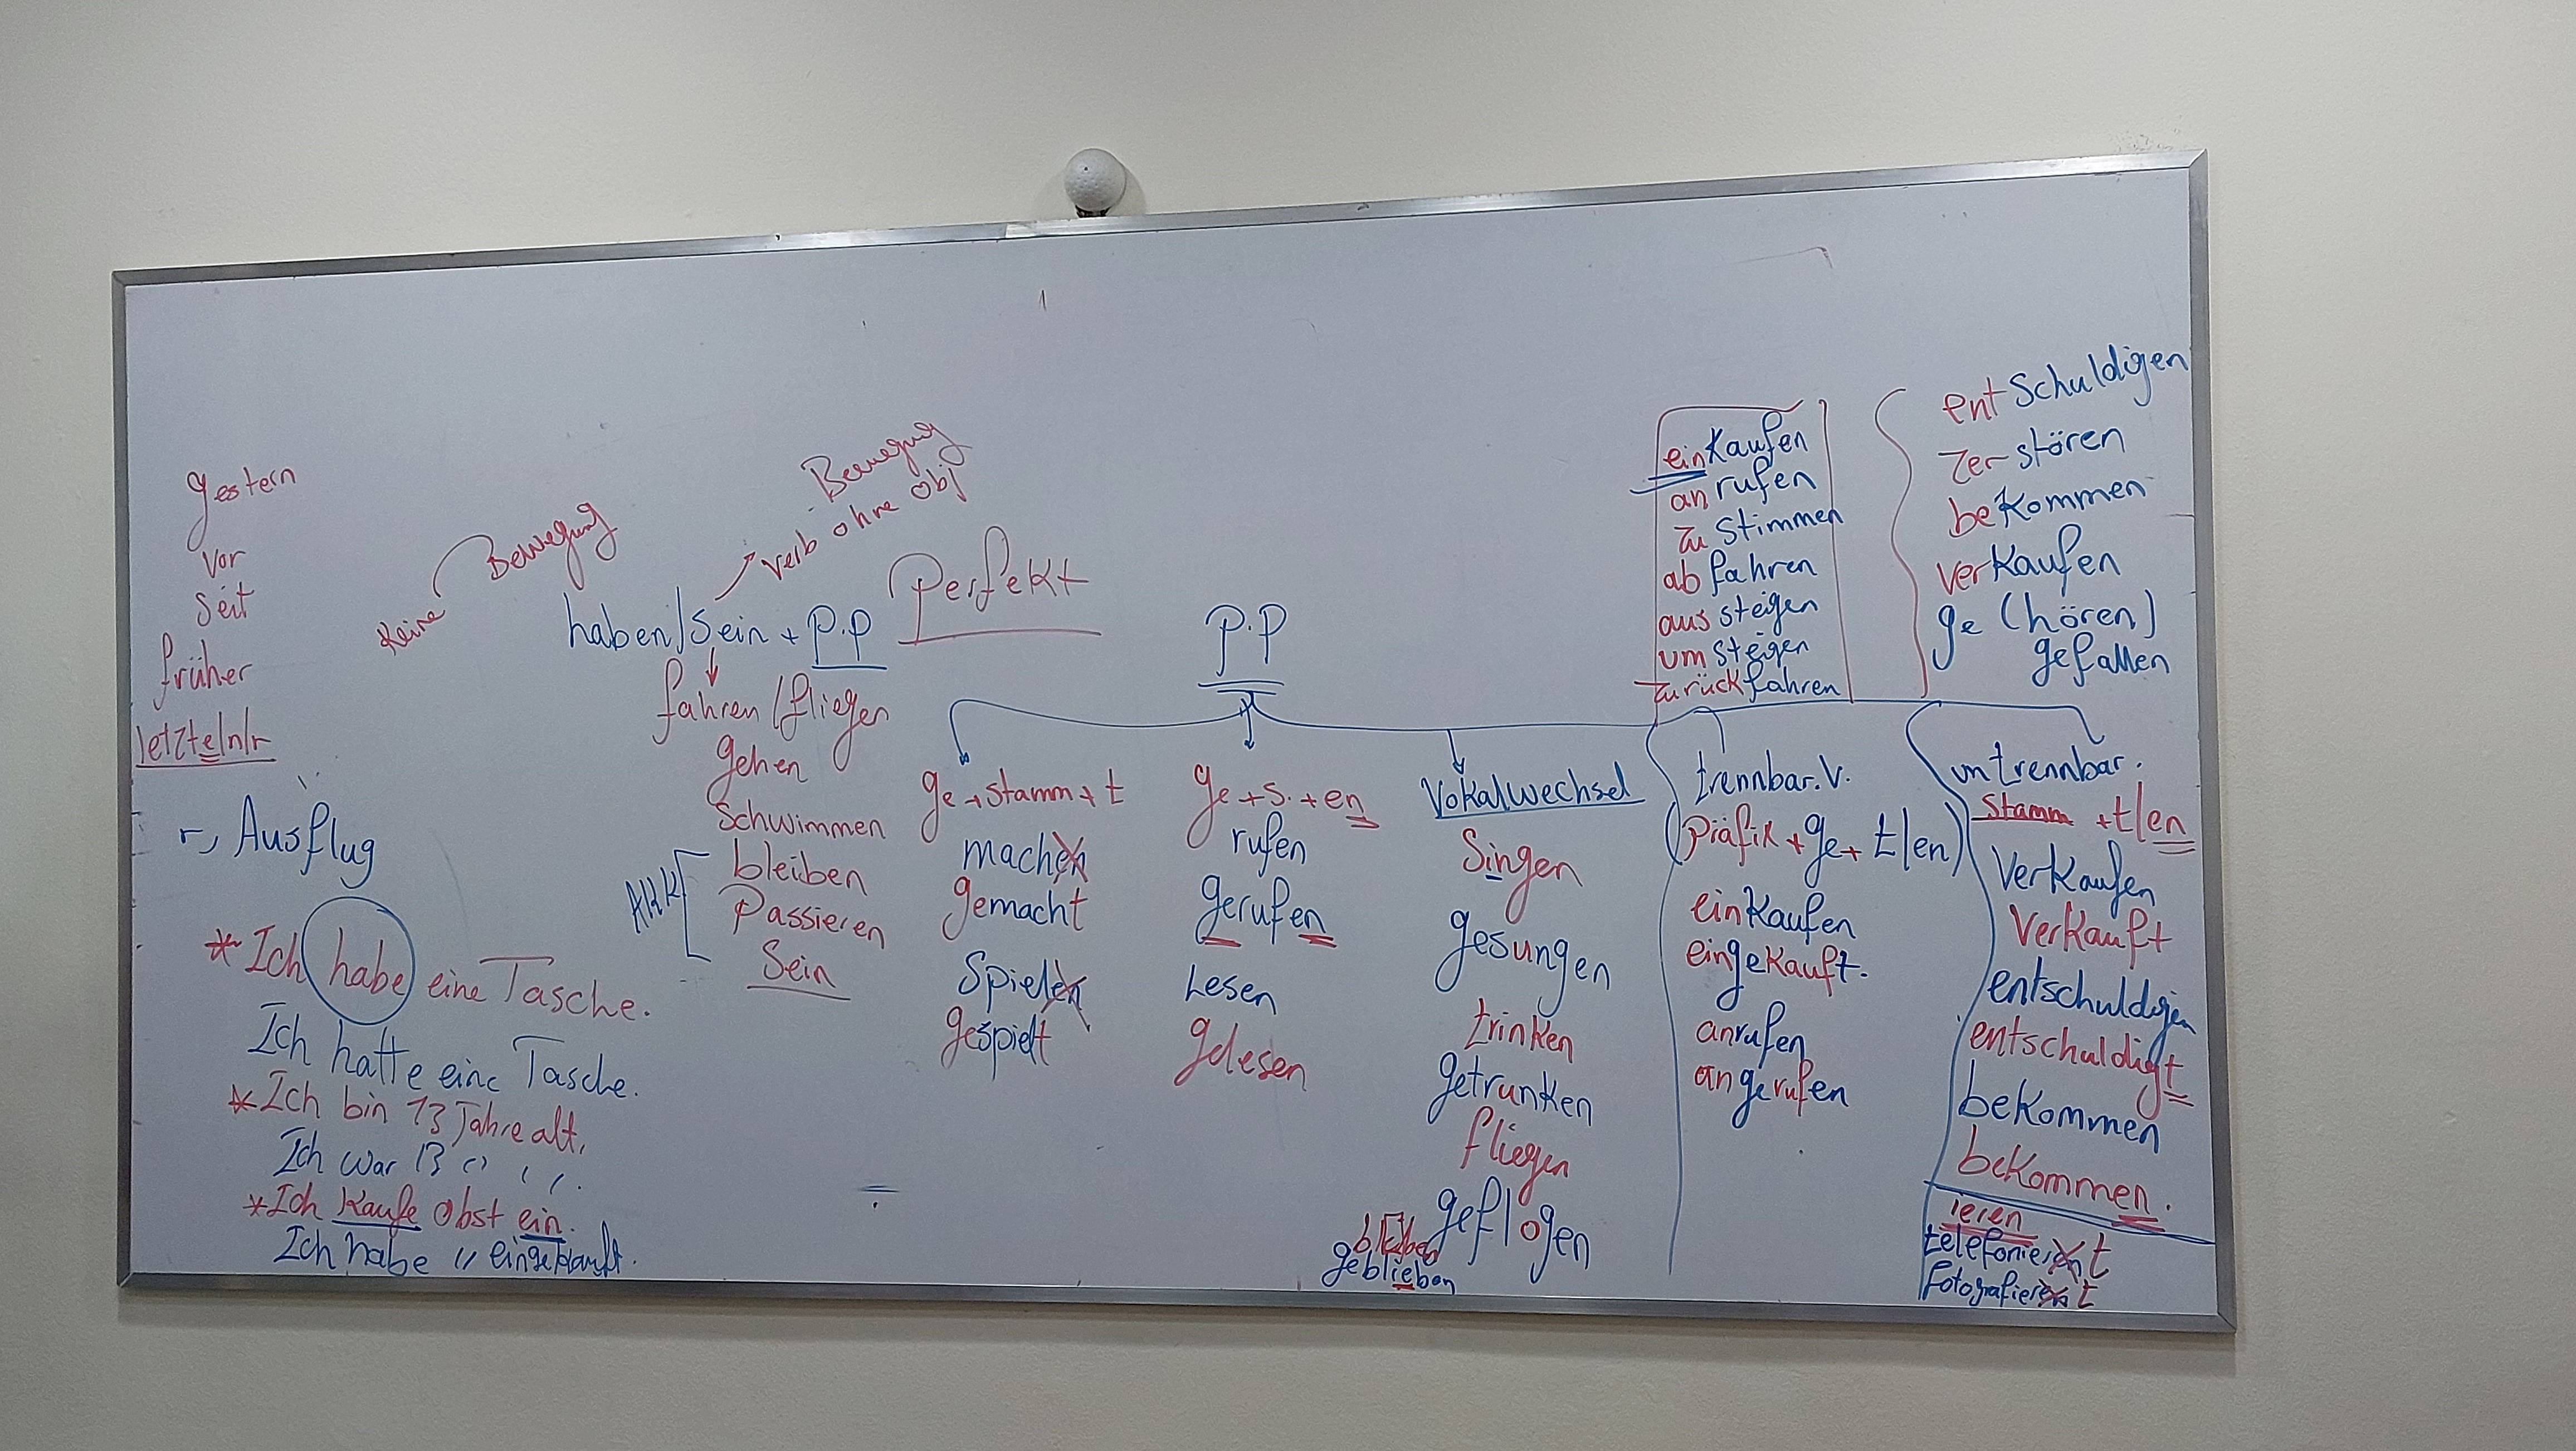 gestern
vor
seit
früher
letzte/n/r
r, Ausflug
* Ich habe eine Tasche.
Ich hatte eine Tasche.
* Ich bin 13 Jahre alt.
Ich war 13 " " "
* Ich kaufe obst ein.
Ich habe " eingekauft.
Keine Bewegung
Bewegung
verb ohne obj
haben/sein + P.P
Perfekt
fahren/fliegen
gehen
schwimmen
bleiben
Passieren
Sein
P.P
ge + stamm + t
machen
gemacht
Spielen
gespielt
ge + s. + en
rufen
gerufen
Lesen
gelesen
Vokalwechsel
Singen
gesungen
trinken
getrunken
fliegen
geflogen
geblieben
einkaufen
an rufen
zu stimmen
ab fahren
aus steigen
um steigen
zurück fahren
trennbar. V.
(Präfix + ge + t/en)
einkaufen
eingekauft.
anrufen
angerufen
ent schuldigen
zer stören
bekommen
verkaufen
ge (hören)
gefallen
untrennbar.
Stamm + t/en
Verkaufen
Verkauft
entschuldigen
entschuldigt
bekommen
bekommen.
ieren
telefonieren t
fotografieren t